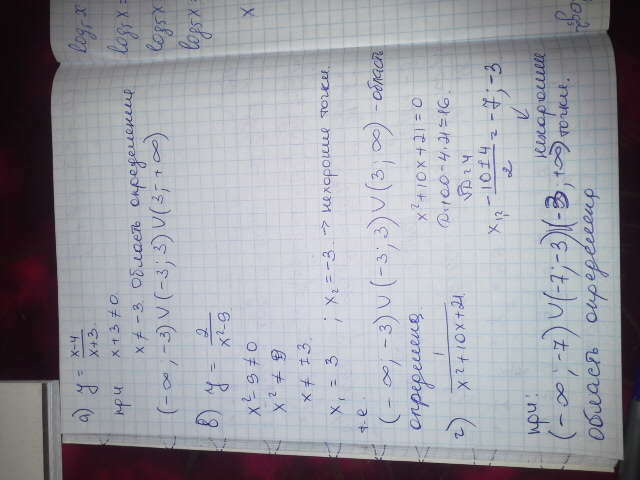 а) y = x-4 / x+3
при x+3 ≠ 0
x ≠ -3. Область определение
(-∞; -3) ∪ (-3; 3) ∪ (3; +∞)
в) y = 2 / x²-9
x²-9 ≠ 0
x² ≠ 9
x ≠ ±3.
x₁ = 3 ; x₂ = -3. → нехорошие точки.
т.е
(-∞; -3) ∪ (-3; 3) ∪ (3; ∞) - область
определена
г) 1 / x²+10x+21
x²+10x+21 = 0
D=100-4·21=16.
√D=4
x₁,₂ -10±4 / 2 = -7; -3
нехорошие
точки.
при:
(-∞; -7) ∪ (-7; -3) (-3; +∞)
область определена
log₅x
log₅x =
log₅x
log₅x =
x